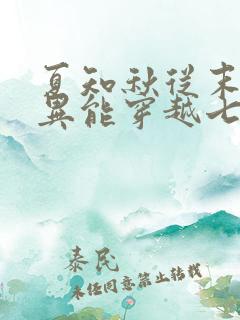 夏知秋从末
异能穿越七
泰民
未经同意禁止转载